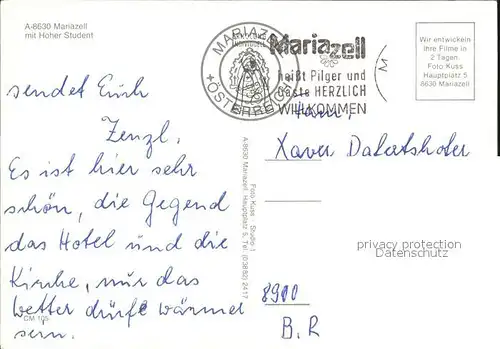 A-8630 Mariazell
mit Hoher Student
MARIAZELL
ÖSTERREICH
Mariazell
heißt Pilger und
Gäste HERZLICH
WILLKOMMEN
Wir entwickeln
Ihre Filme in
2 Tagen.
Foto Kuss
Hauptplatz 5
8630 Mariazell
sendet Euch
Zenzl.
Es ist hier sehr
schön, die Gegend
das Hotel und die
Kirche, nur das
Wetter dürfte wärmer
sein.
CM 105
Foto Kuss - Studio 1
A-8630 Mariazell, Hauptplatz 5, Tel. (03882) 2417
Fam.
Xaver
privacy protection
Datenschutz
8900
B. R